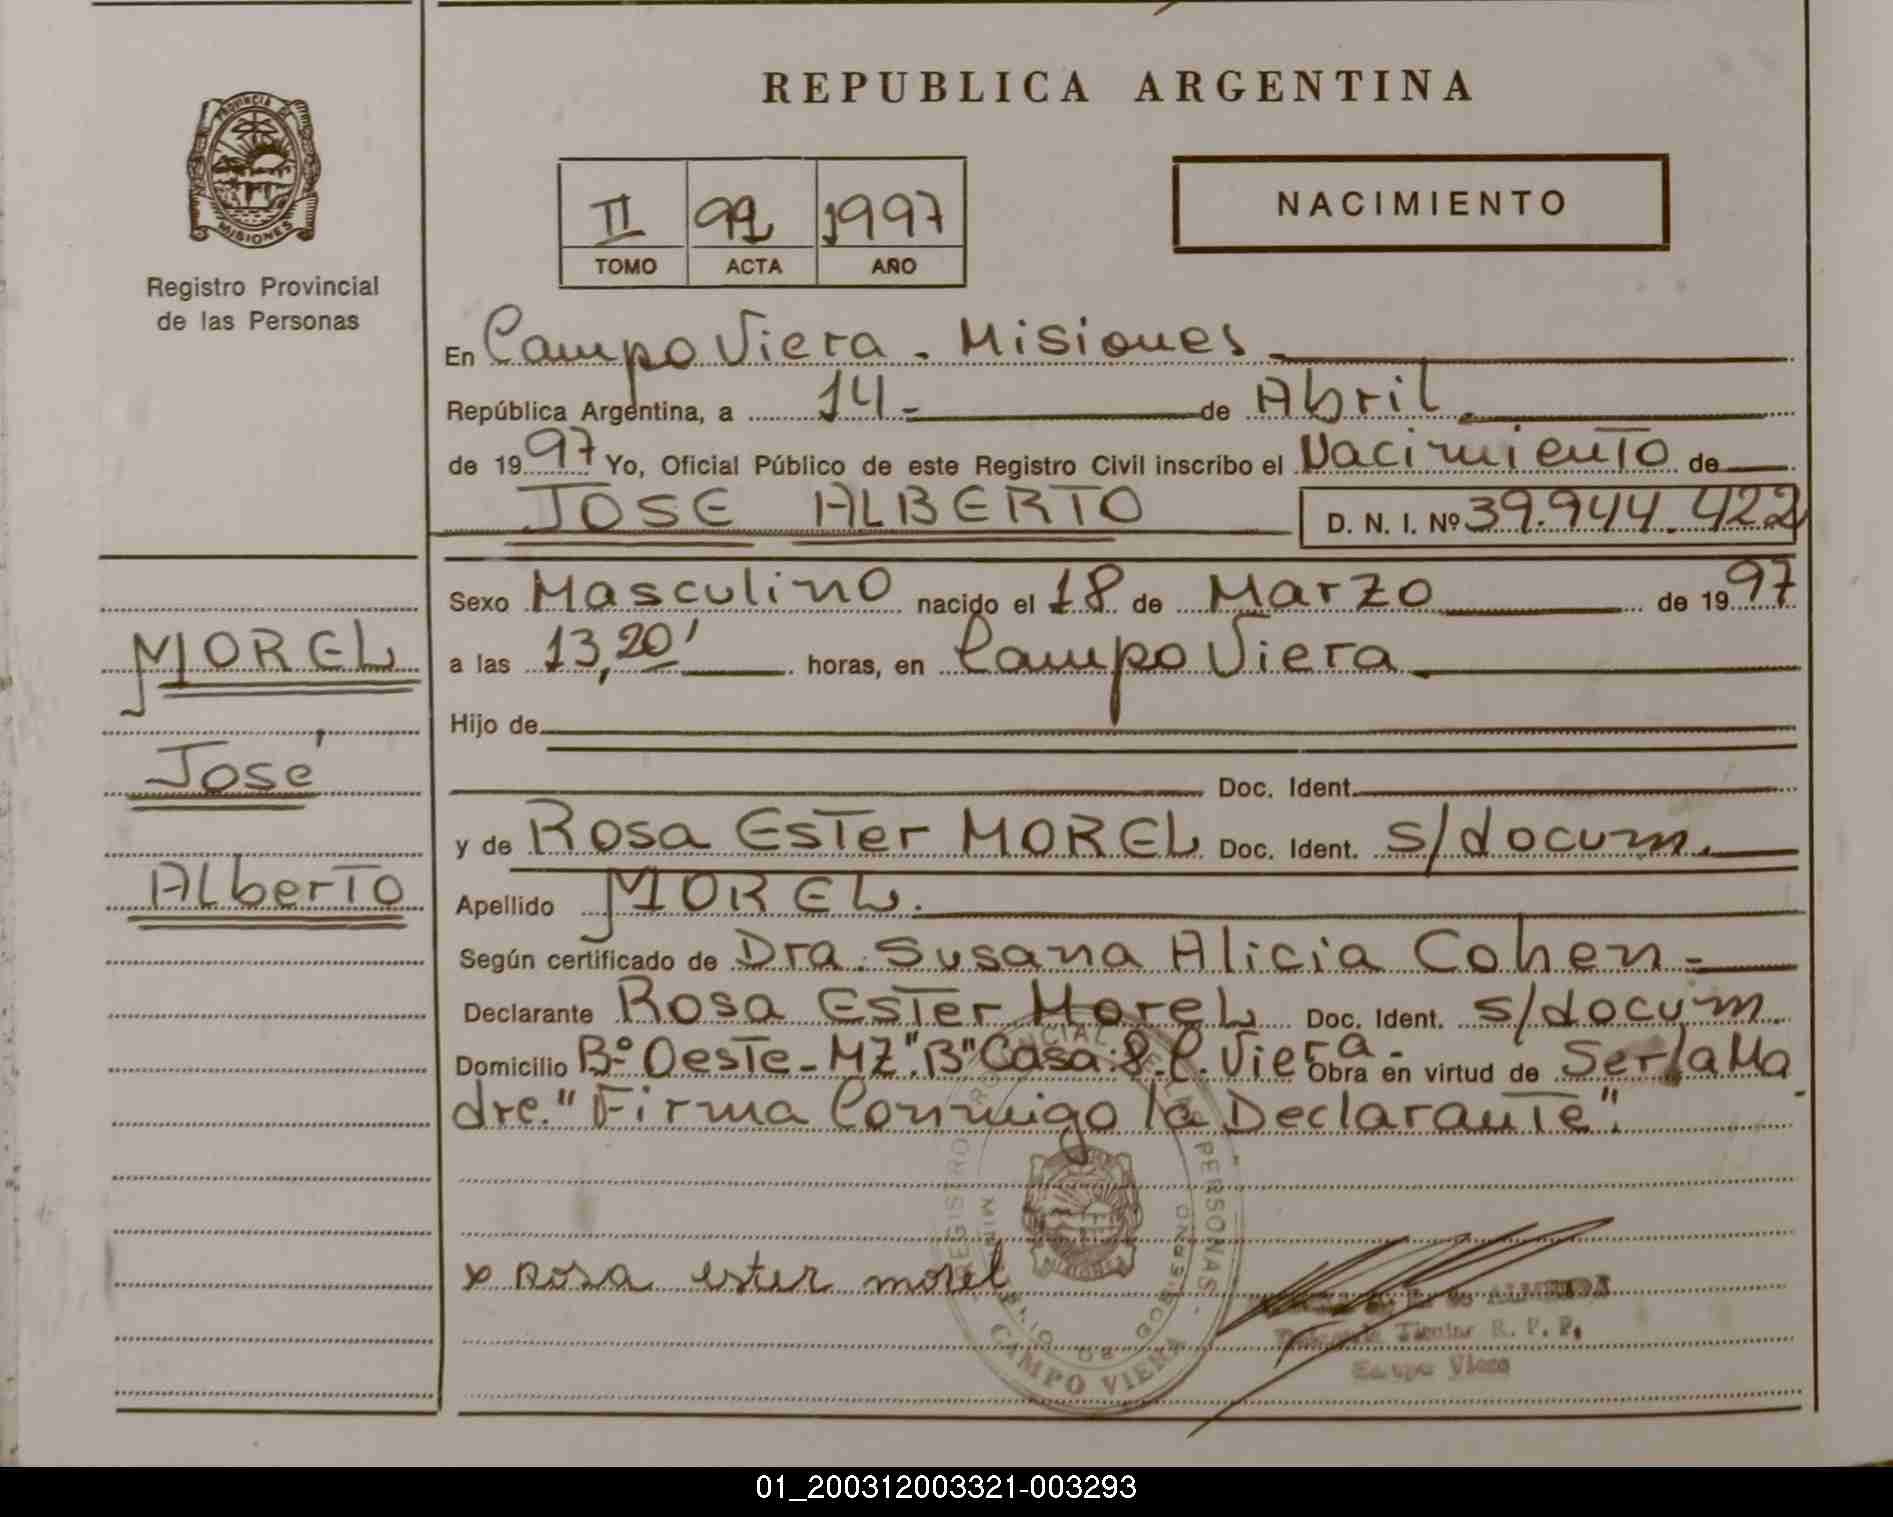 REPUBLICA ARGENTINA
PROVINCIA DE
MISIONES
Registro Provincial
de las Personas
II 91 1997
TOMO ACTA AÑO
NACIMIENTO
En Campo Viera - Misiones
República Argentina, a 14 - de Abril
de 1997 Yo, Oficial Público de este Registro Civil inscribo el Nacimiento de
JOSE ALBERTO D. N. I. Nº 39.944.422
Sexo Masculino nacido el 18 de Marzo de 1997
a las 13,20' horas, en Campo Viera
Hijo de
Doc. Ident.
y de Rosa Ester MOREL Doc. Ident. s/docum.
Apellido MOREL.
Según certificado de Dra. Susana Alicia Cohen -
Declarante Rosa Ester Morel Doc. Ident. s/docum.
Domicilio Bº Oeste - MZ "B" Casa: 8. C. Viera - Obra en virtud de Ser la Ma
dre. "Firma Conmigo la Declarante".
MOREL
José
Alberto
x rosa ester morel
REGISTRO PROVINCIAL DE LAS PERSONAS
MINISTERIO DE GOBIERNO
MISIONES
CAMPO VIERA
de ALMEIDA
Titular R. P. P.
Campo Viera
01_200312003321-003293